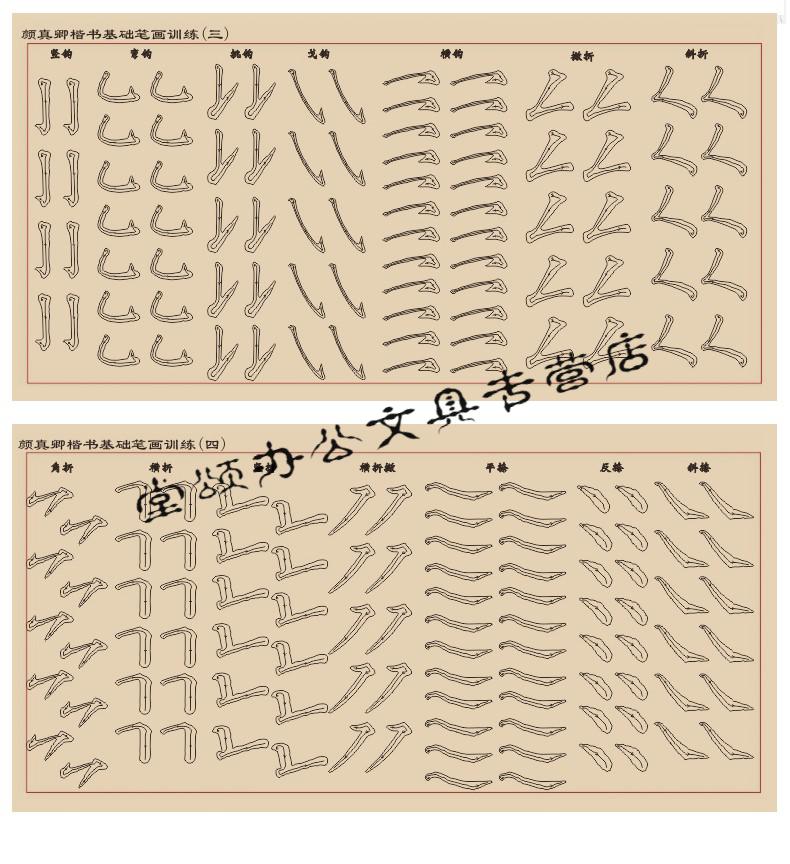 颜真卿楷书基础笔画训练(三)
竖钩 弯钩 挑钩 戈钩 横钩 撇折 斜折
颜真卿楷书基础笔画训练(四)
角折 横折 竖折 横折撇 平捺 反捺 斜捺
堂颂办公文具舌营店